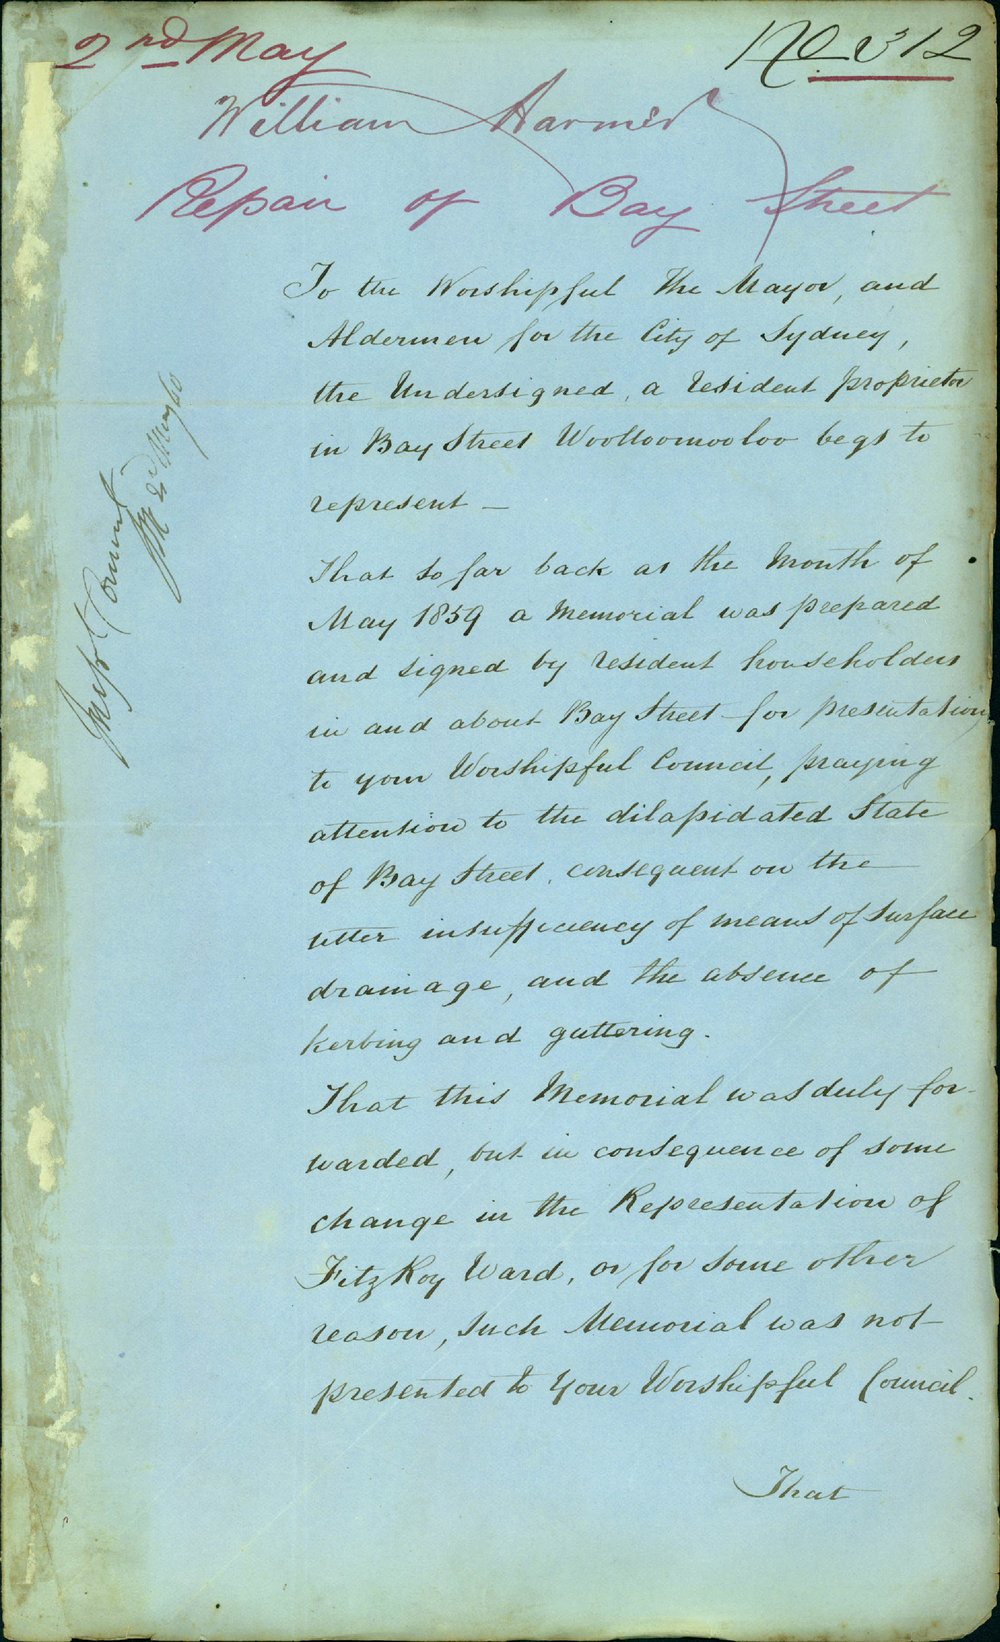 2nd May
No 312
William Harmer
Repair of Bay Street
To the Worshipful The Mayor, and
Aldermen for the City of Sydney,
the Undersigned, a resident proprietor
in Bay Street Woolloomooloo begs to
represent —
That so far back as the Month of
May 1859 a Memorial was prepared
and signed by resident householders
in and about Bay Street for presentation,
to your Worshipful Council, praying
attention to the dilapidated State
of Bay Street, consequent on the
utter insufficiency of means of surface
drainage, and the absence of
kerbing and guttering.
That this Memorial was duly for-
warded, but in consequence of some
change in the Representation of
FitzRoy Ward, or for some other
reason, such Memorial was not
presented to Your Worshipful Council.
That
2d May 60